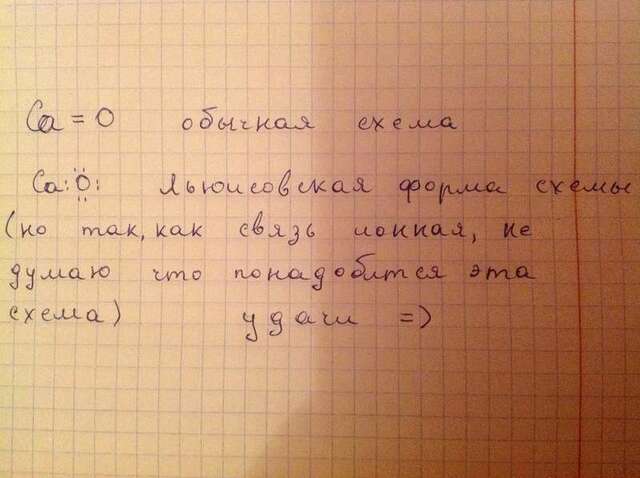 Ca = O обычная схема
Ca:Ö: Льюисовская форма схемы
(но так, как связь ионная, не
думаю что понадобится эта
схема) удачи =)